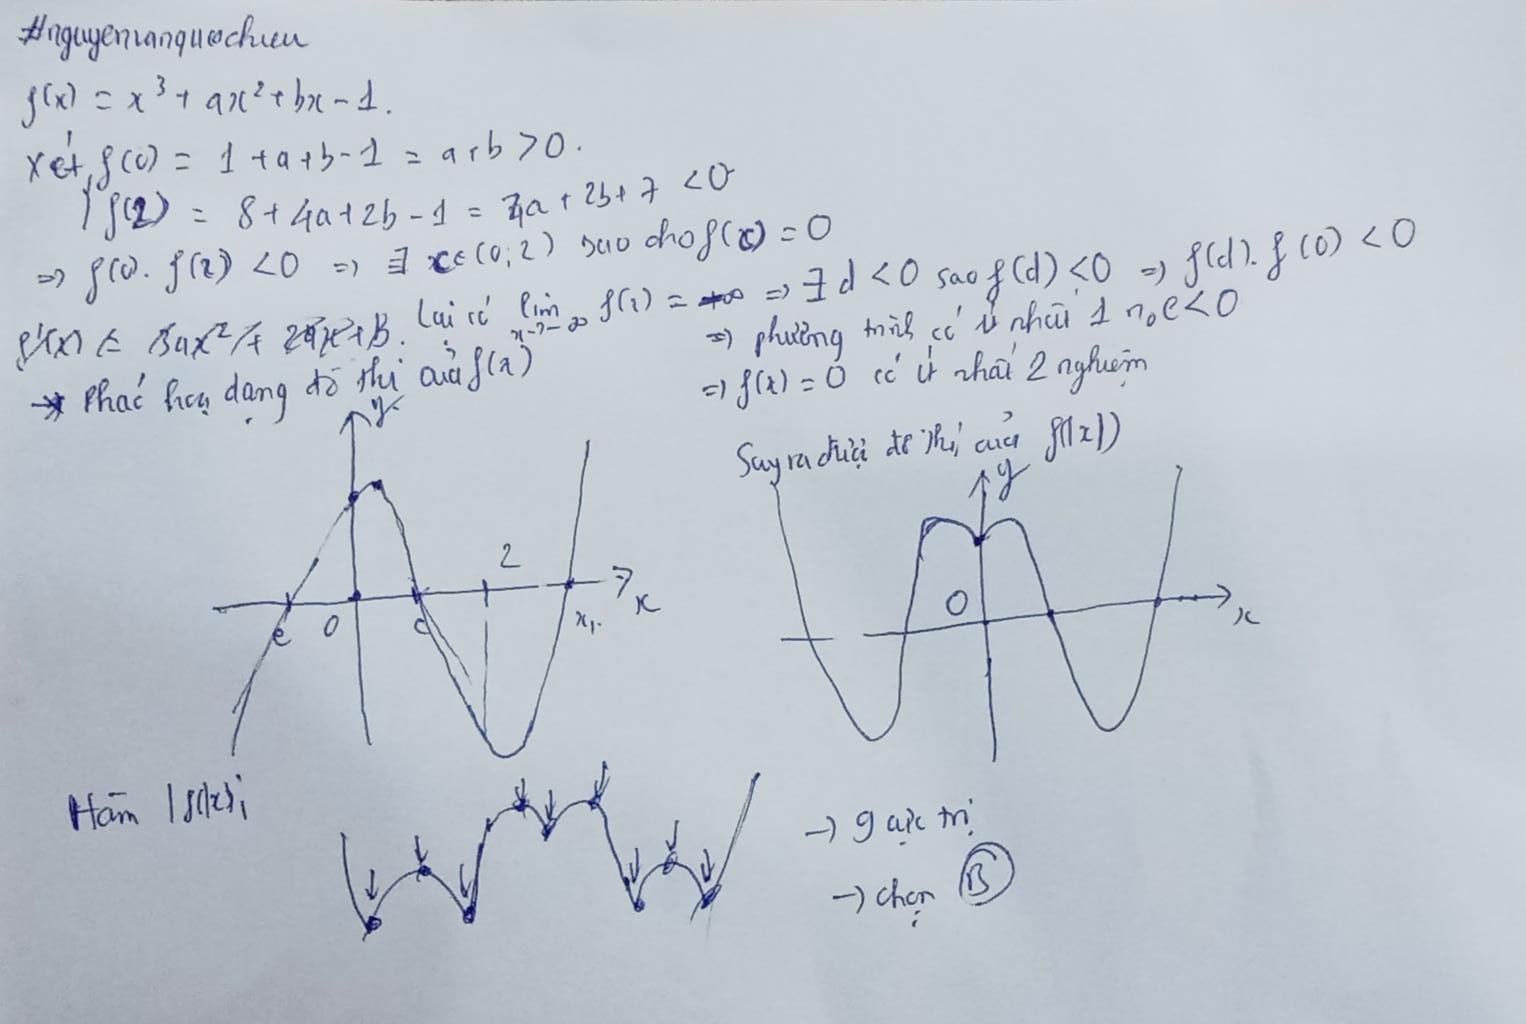 #nguyenvanquochieu
f(x) = x³ + ax² + bx - 1.
Xét f(0) = 1 + a + b - 1 = a + b > 0.
f(2) = 8 + 4a + 2b - 1 = 4a + 2b + 7 < 0
=> f(0). f(2) < 0 => ∃ c ∈ (0; 2) sao cho f(c) = 0
Lại có lim x->-∞ f(x) = -∞ => ∃ d < 0 sao f(d) < 0 => f(d). f(0) < 0
=> phương trình có ít nhất 1 no e < 0
=> f(x) = 0 có ít nhất 2 nghiệm
Phác hoạ dạng đồ thị của f(x)
y
2
x
e
0
c
x₁.
Suy ra được đồ thị của f(|x|)
y
0
x
Hàm |f(|x|)|
-> 9 cực trị
-> chọn B